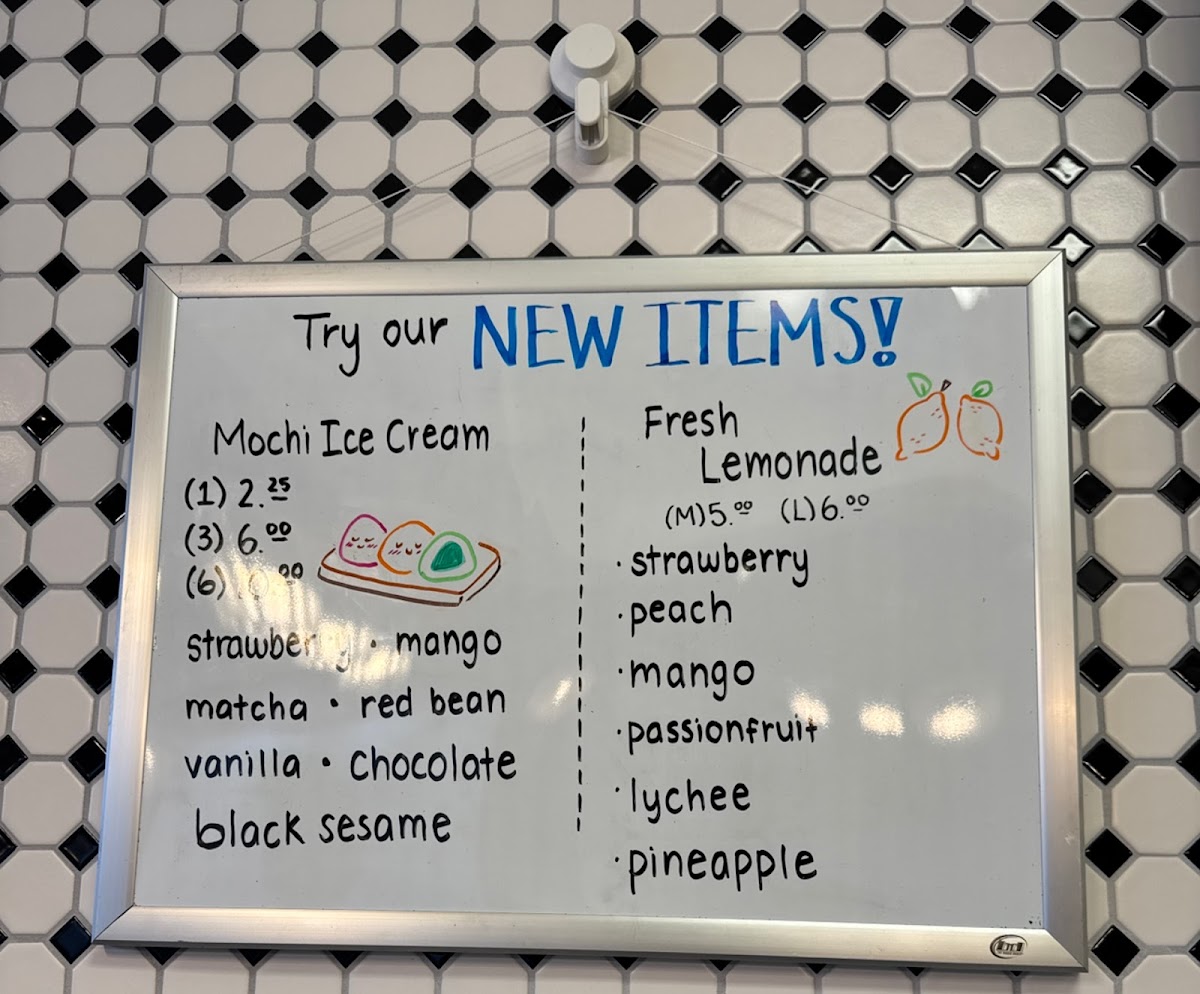 Try our NEW ITEMS!
Mochi Ice Cream
(1) 2.25
(3) 6.00
(6)
strawberry · mango
matcha · red bean
vanilla · chocolate
black sesame
Fresh
Lemonade
(M) 5.00 (L) 6.00
· strawberry
· peach
· mango
· passionfruit
· lychee
· pineapple